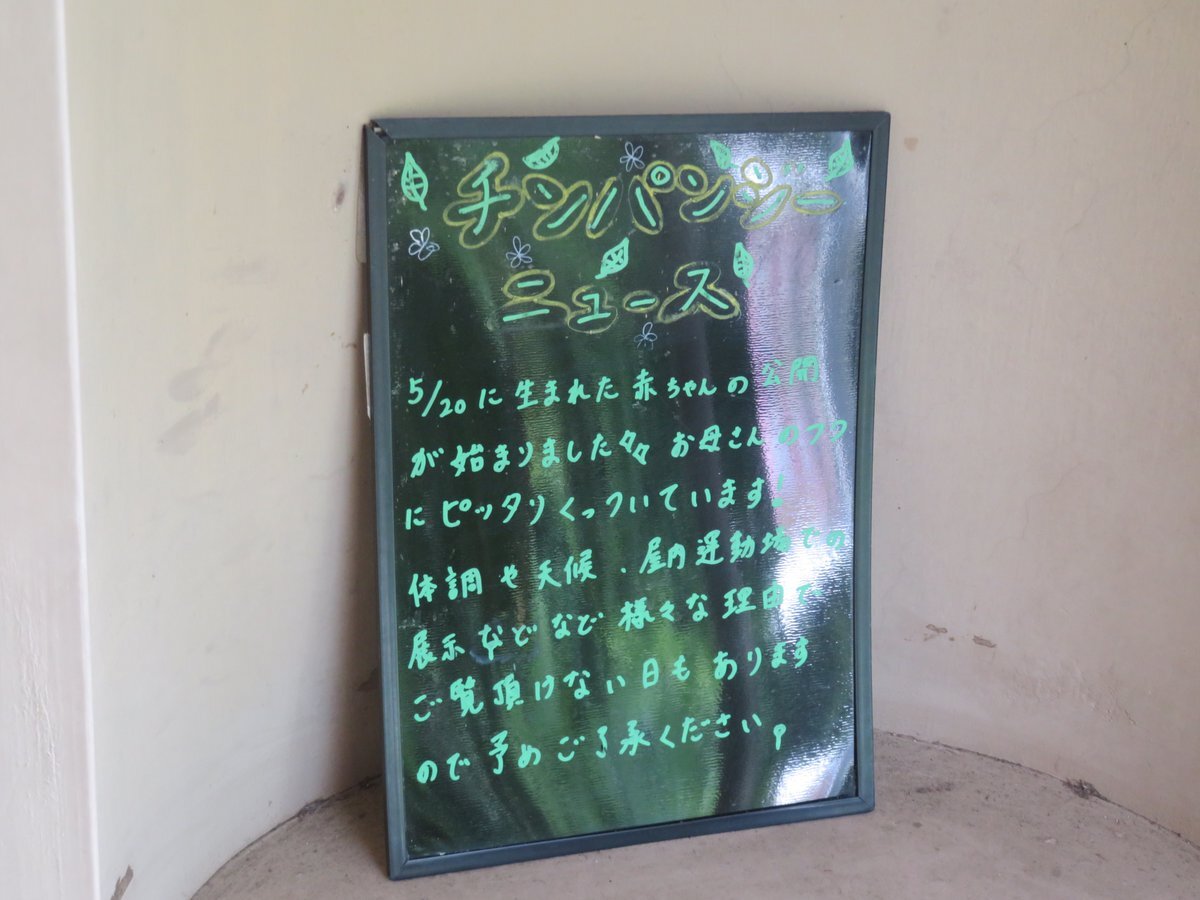 チンパンジー
ニュース
5/20に生まれた赤ちゃんの公開
が始まりました お母さんの
にピッタリくっついています!
体調や天候、屋内運動場での
展示などなど様々な理由で
ご覧頂けない日もあります
ので予めご了承ください。